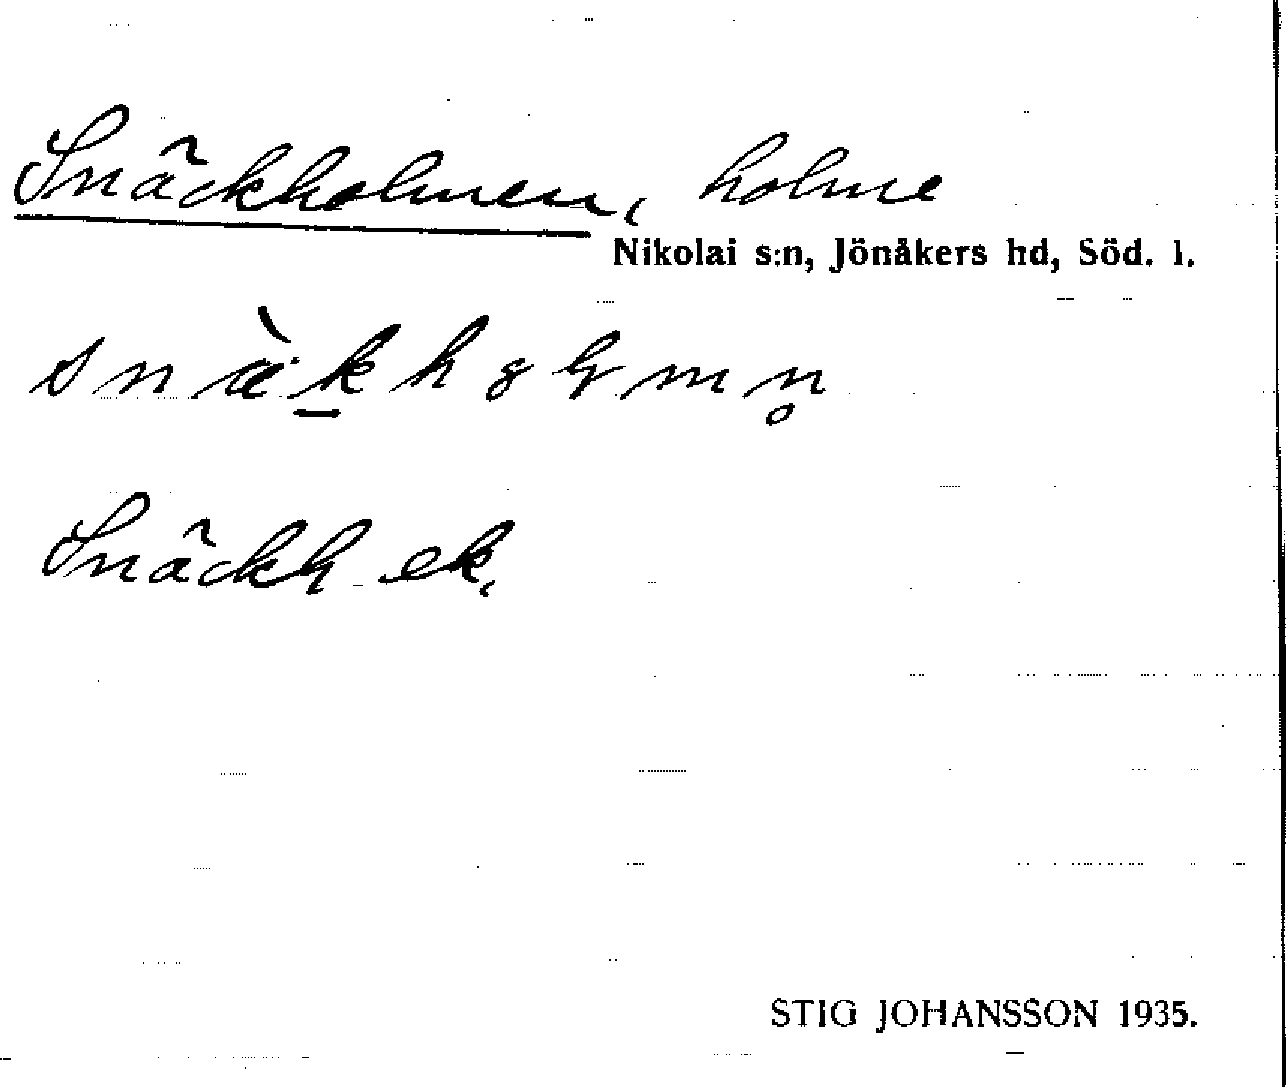 Snäckholmen, holme
Nikolai s:n, Jönåkers hd, Söd. l.
Snäckh ek.
STIG JOHANSSON 1935.